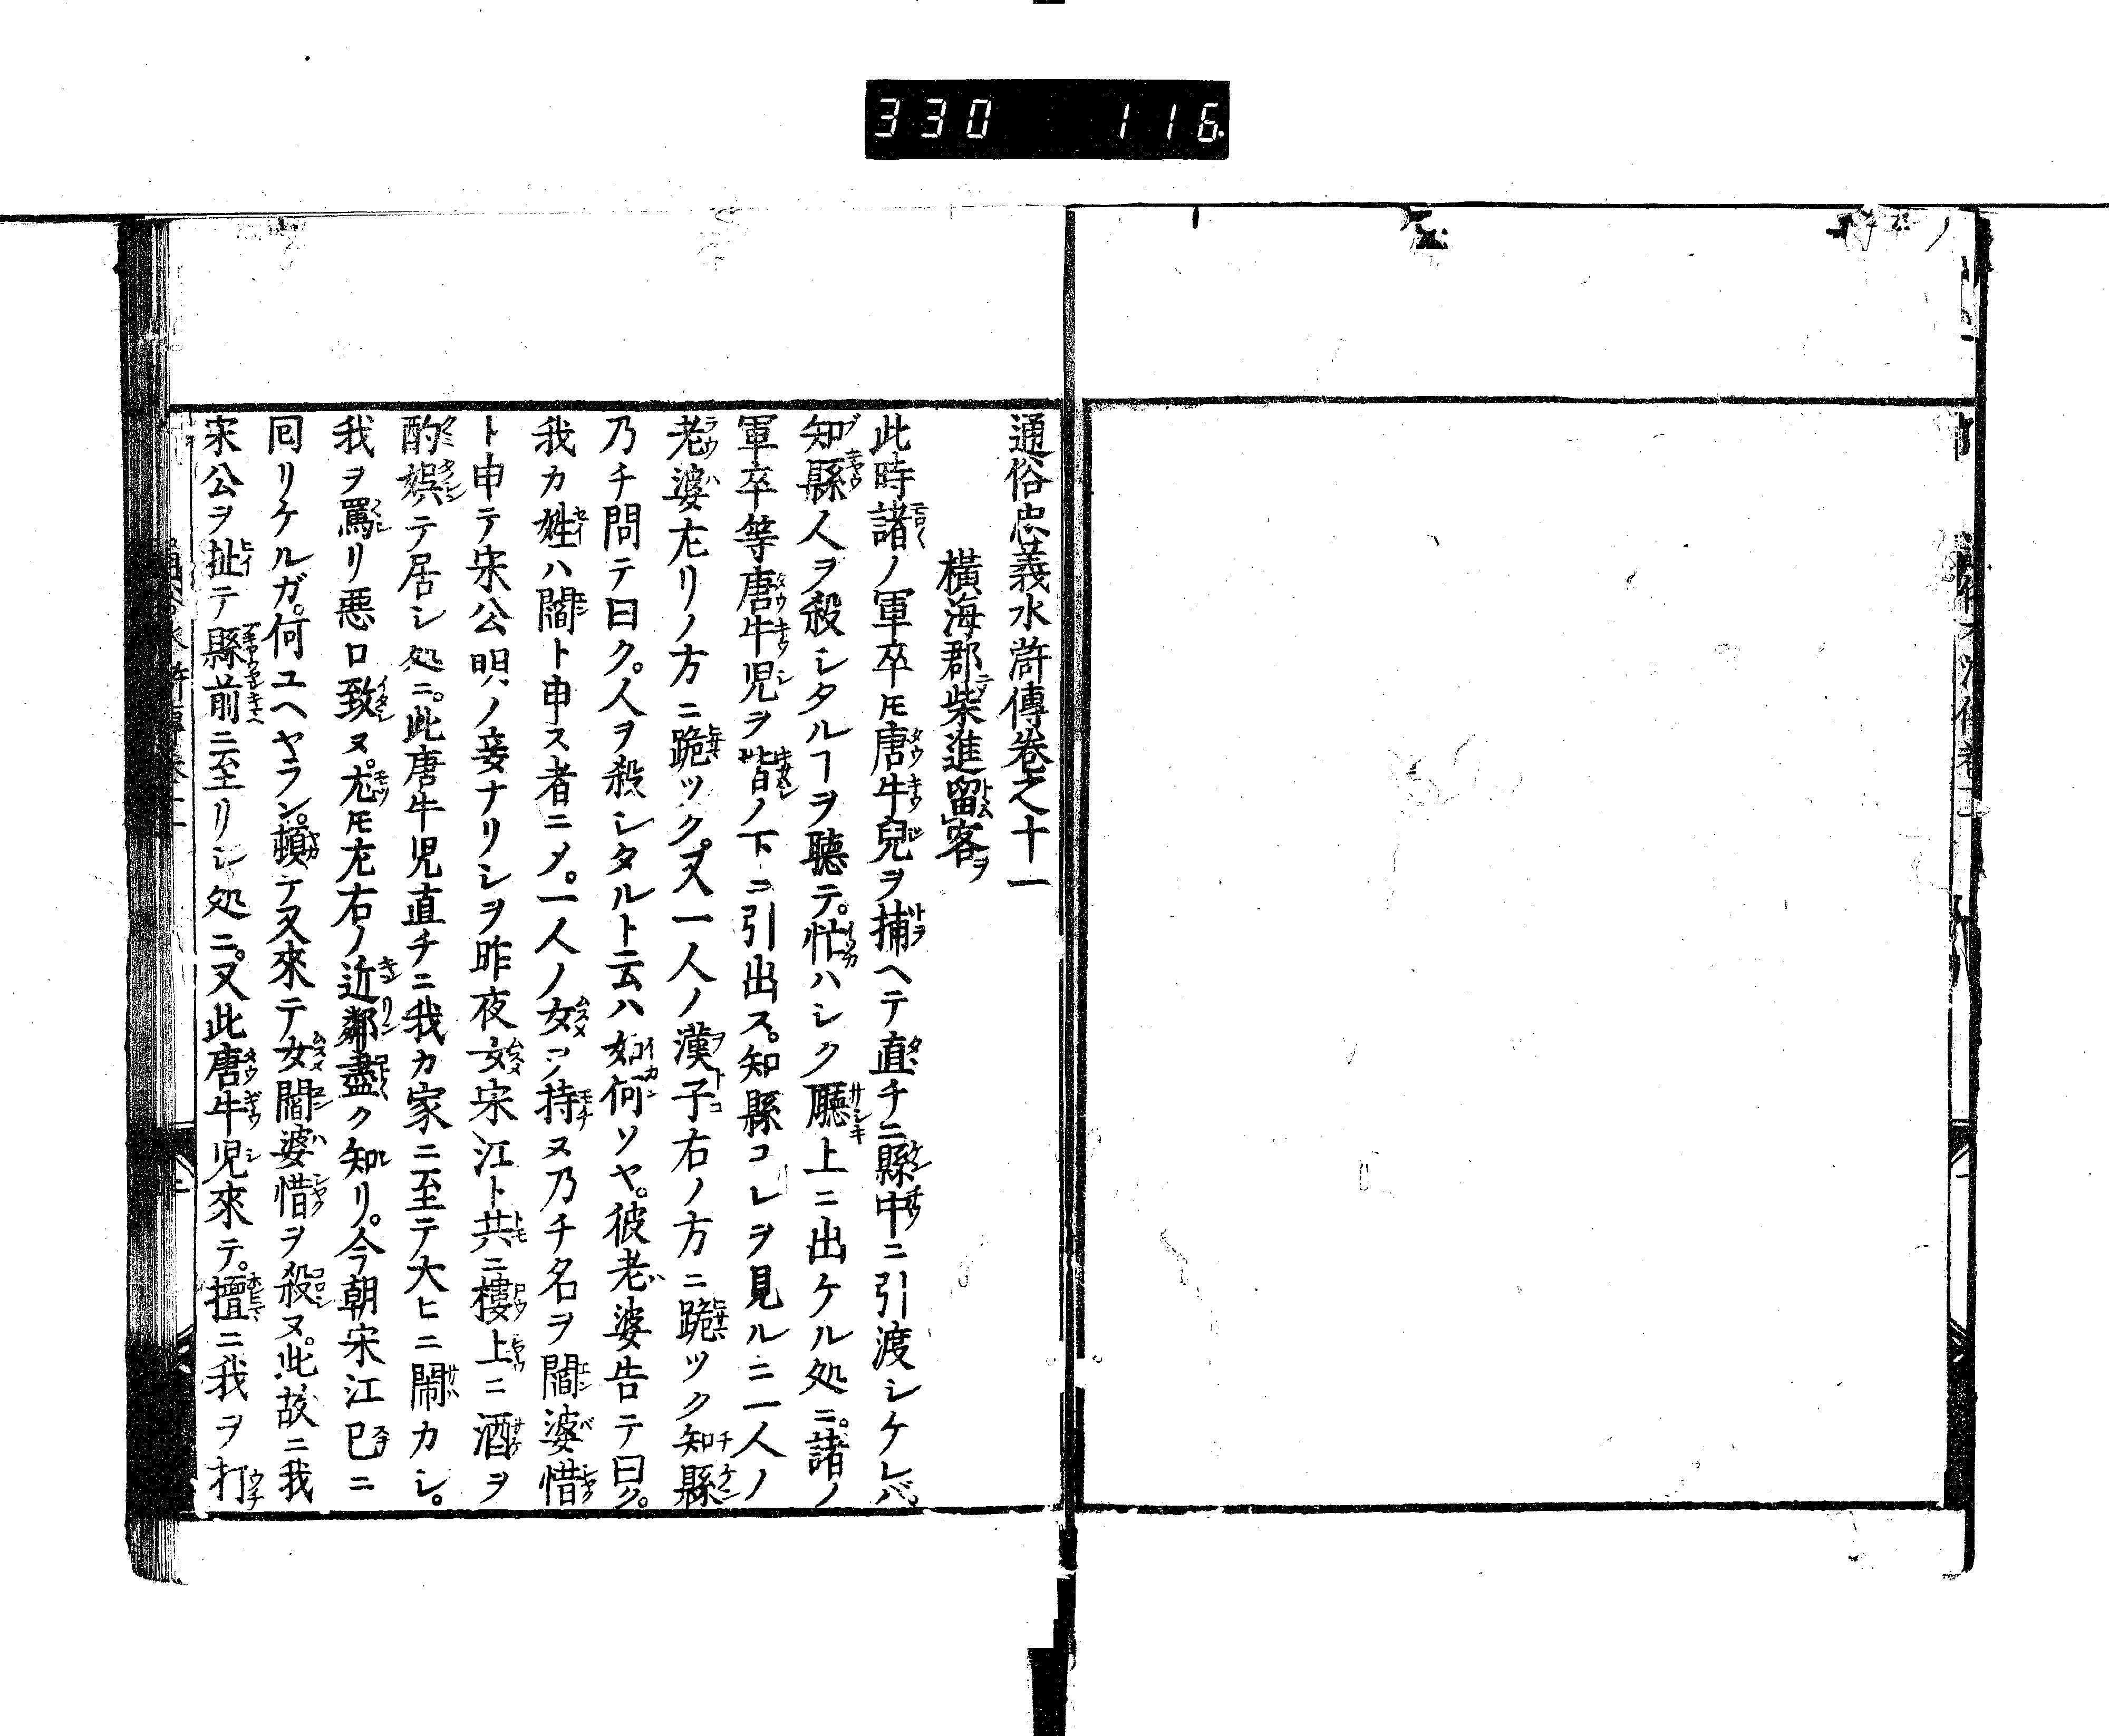 330 116
通俗忠義水滸傳卷之十一
橫海郡ニ柴進留客ヲ
此時諸ノ軍卒モ唐牛兒ヲ捕ヘテ直チニ縣中ニ引渡シケレバ
知縣人ヲ殺シタルヿヲ聽テ。忙ハシク廳上ニ出ケル処ニ。諸ノ
軍卒等唐牛児ヲ堦ノ下ニ引出ス。知縣コレヲ見ルニ一人ノ
老婆左リノ方ニ跪ツク。又一人ノ漢子右ノ方ニ跪ツク知縣
乃チ問テ曰ク。人ヲ殺シタルト云ハ如何ソヤ。彼老婆告テ曰ク。
我カ姓ハ閻ト申ス者ニメ。一人ノ女ヲ持ヌ乃チ名ヲ閻婆惜
ト申テ宋公明ノ妾ナリシヲ昨夜女宋江ト共ニ樓上ニ酒ヲ
酌娯テ居シ処ニ。此唐牛児直チニ我カ家ニ至テ大ヒニ閙カシ。
我ヲ罵リ悪口致ヌ。尤モ左右ノ近鄰盡ク知リ。今朝宋江已ニ
囘リケルガ。何ユヘヤラン。頓テ又來テ女閻婆惜ヲ殺ヌ。此故ニ我
宋公ヲ扯テ縣前ニ至リシ処ニ。又此唐牛児來テ。擅ニ我ヲ打